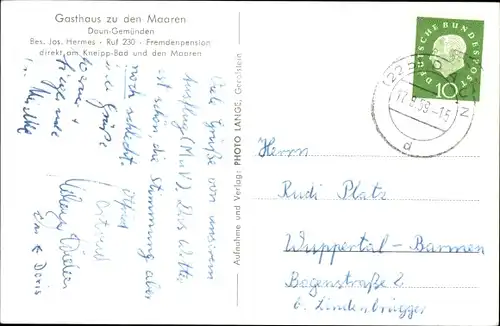 Gasthaus zu den Maaren
Daun-Gemünden
Bes. Jos. Hermes · Ruf 230 · Fremdenpension
direkt am Kneipp-Bad und den Maaren
Viele Grüße von unserem
Ausflug (M.u.V.). Das Wetter
ist schön, die Stimmung aber
noch schlecht.
Grüße
Doris
Aufnahme und Verlag: PHOTO LANGE, Gerolstein
DEUTSCHE BUNDESPOST
10
(22
17.9.59-15
d
Herrn
Rudi Platz
Wuppertal-Barmen
Bogenstraße 2
b. Lindenbrügger